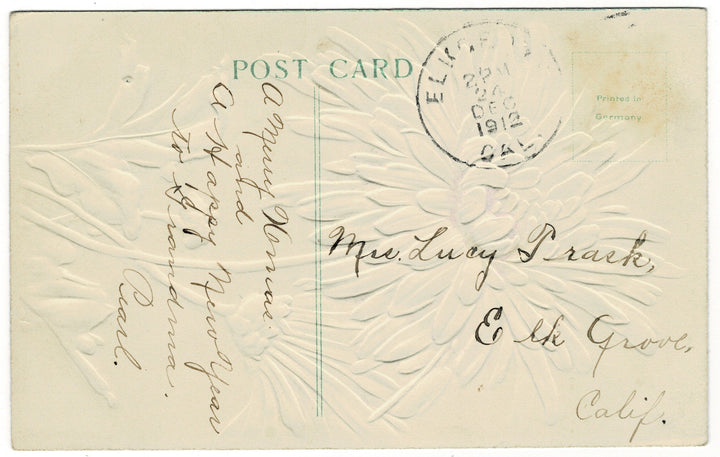 POST CARD
ELK GROVE
2 PM
24
DEC
1912
CAL.
Printed in
Germany
A Merry Xmas
and
A Happy New Year
to Grandma.
Pearl.
Mrs. Lucy
Elk Grove,
Calif.